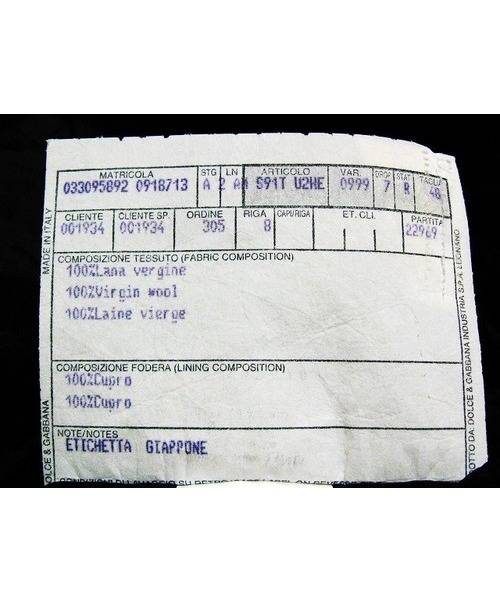 MATRICOLA STG LN ARTICOLO VAR. DROP STAT TAGLIA
033095892 0918713 A 2 591T U2HE 0999 7 R 48
CLIENTE CLIENTE SP. ORDINE RIGA CAPI/RIGA ET. CLI. PARTITA
001934 001934 305 8 22969
COMPOSIZIONE TESSUTO (FABRIC COMPOSITION)
100%Lana vergine
100%Virgin wool
100%Laine vierge
COMPOSIZIONE FODERA (LINING COMPOSITION)
100%Cupro
100%Cupro
NOTE/NOTES
ETICHETTA GIAPPONE
MADE IN ITALY
DOLCE & GABBANA
DOLCE & GABBANA INDUSTRIA S.P.A. LEGNANO